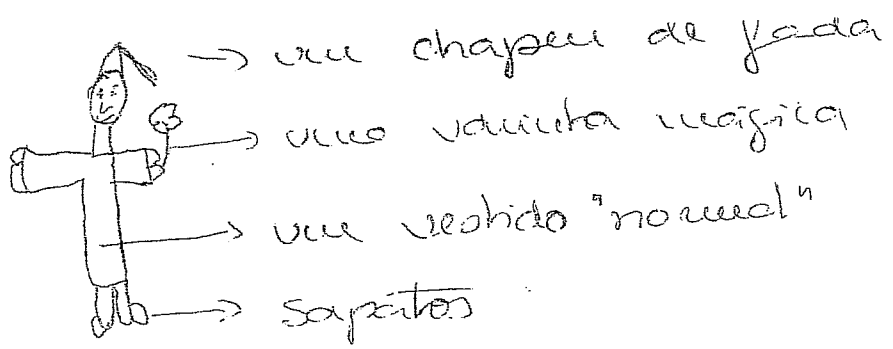 um chapeu de fada
uma varinha mágica
um vestido "normal"
sapatos